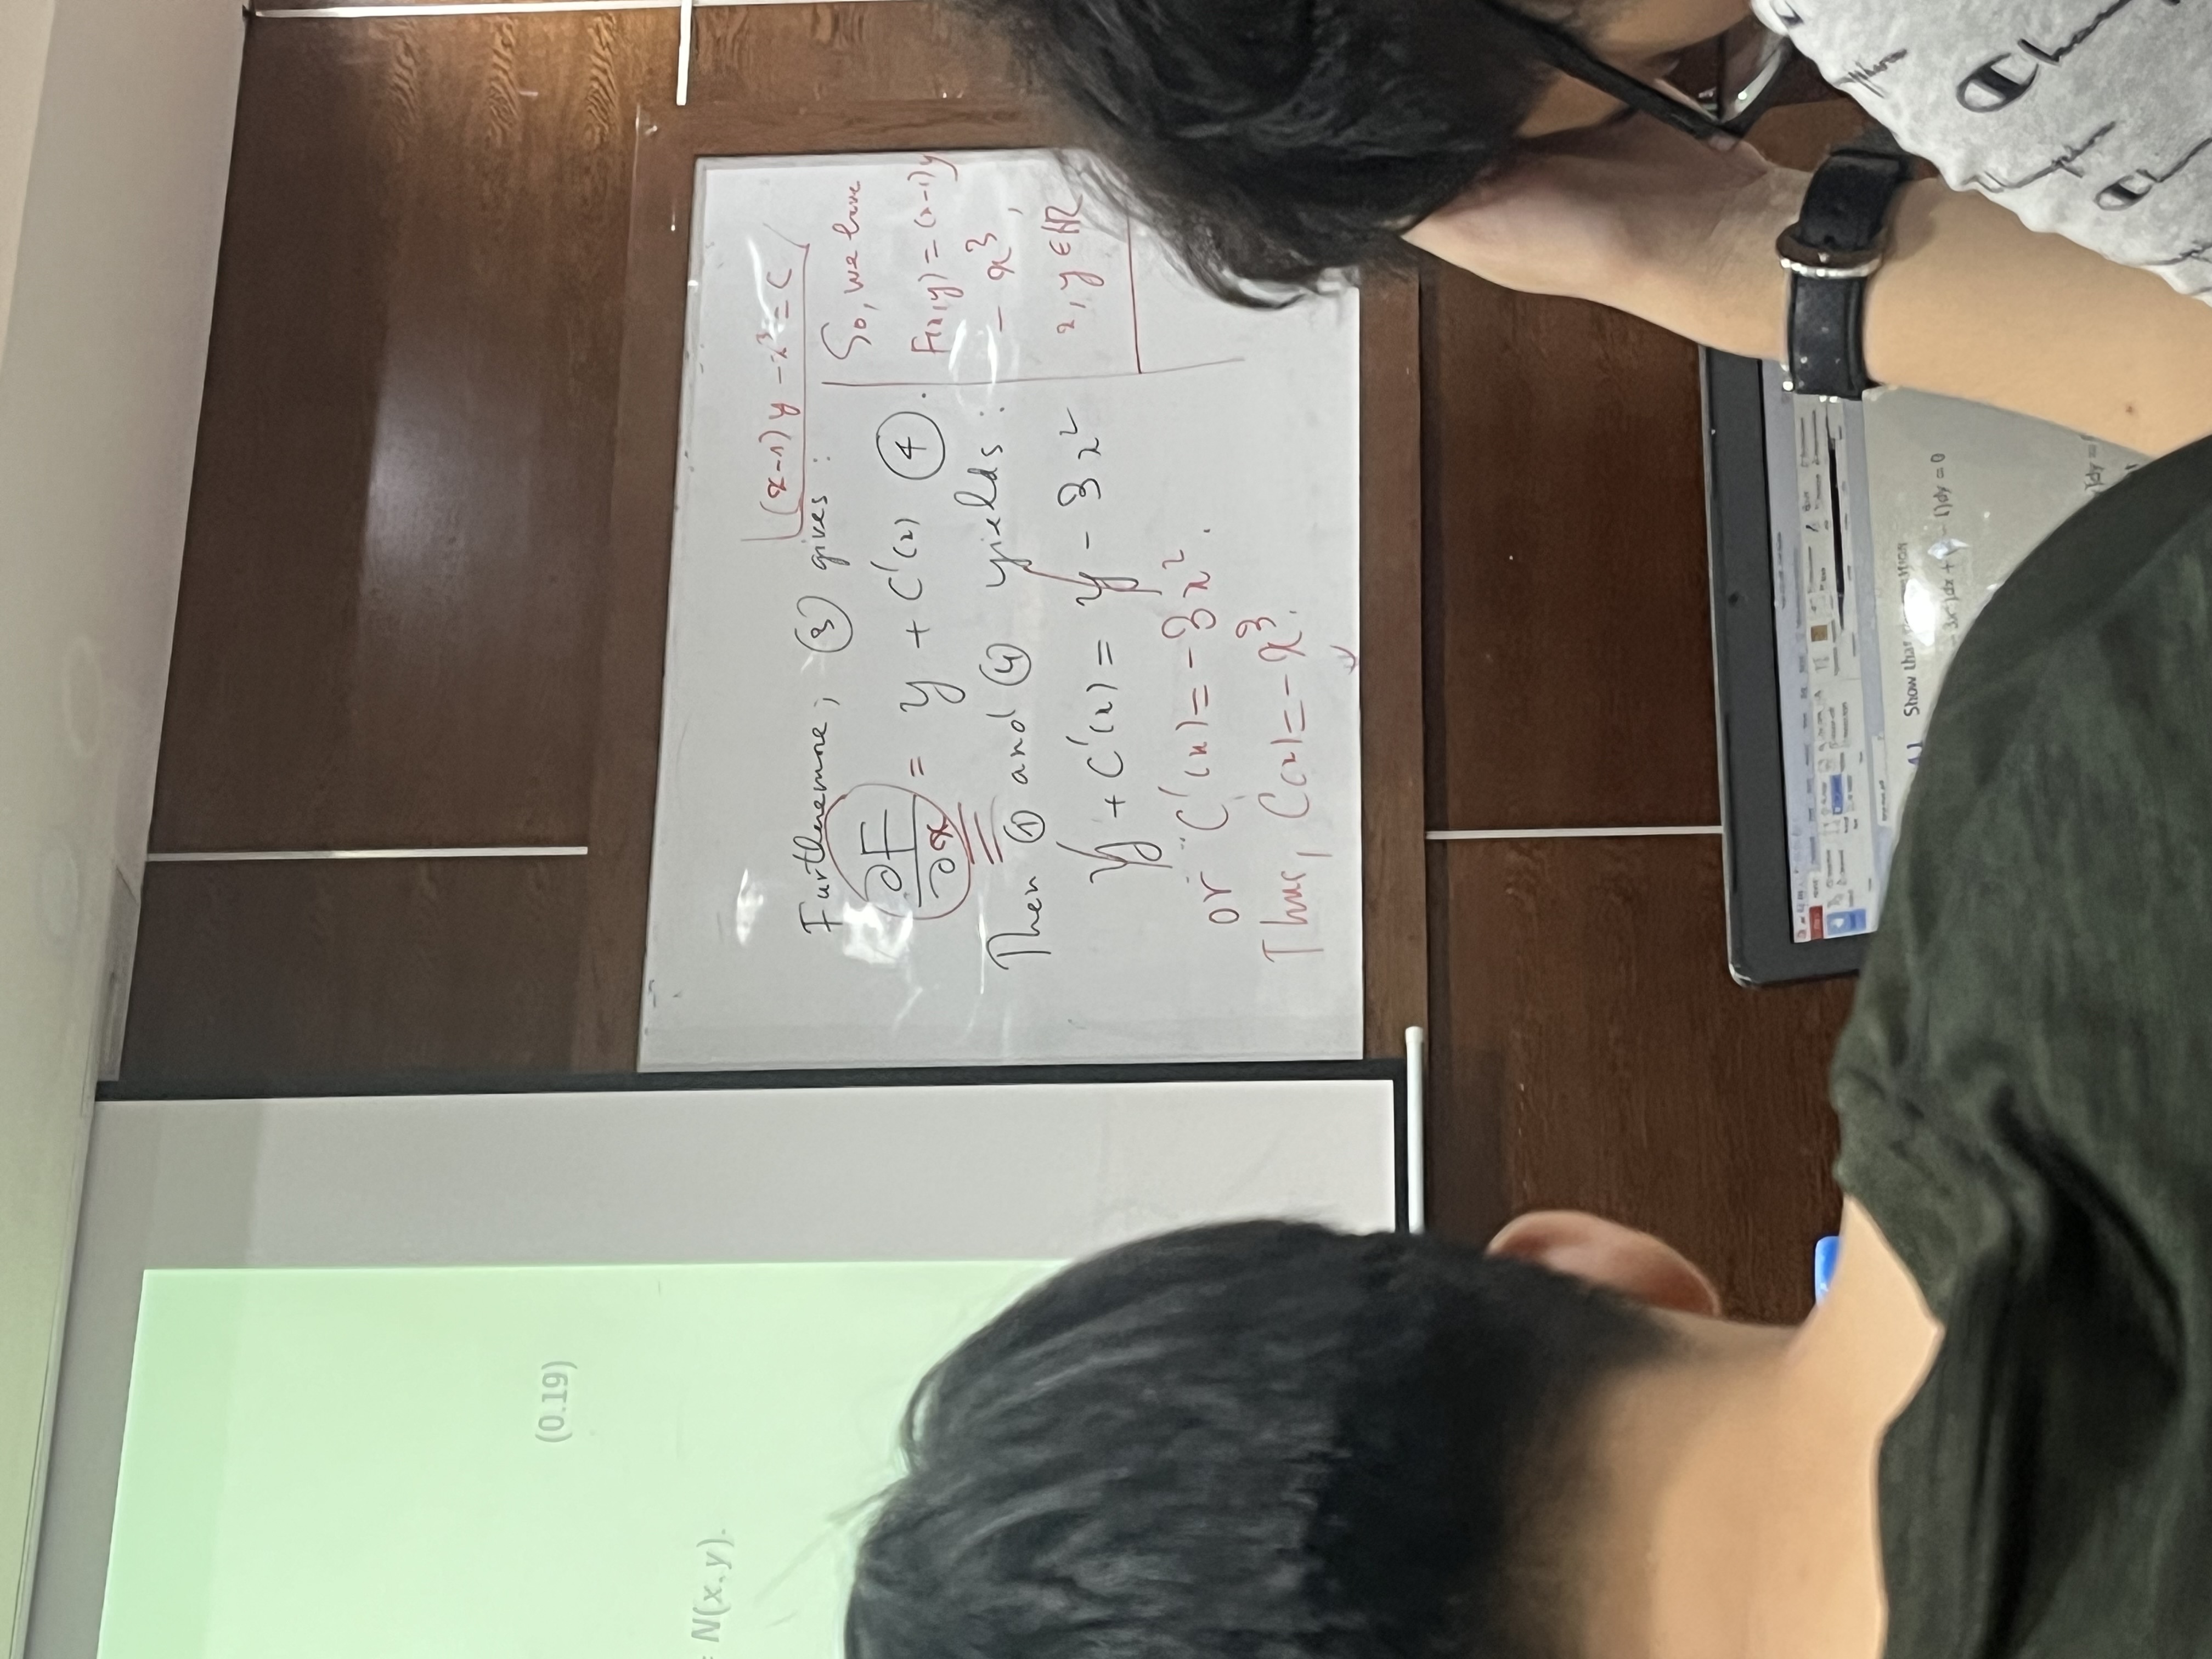 (0.19)
N(x, y).
(x-1) y - x³ = C
Furthermore, ③ gives :
∂F/∂x = y + C'(x) ④.
Then ① and ④ yields :
y + C'(x) = y - 3x²
or C'(x) = -3x².
Thus, C(x) = -x³.
So, we have
F(x,y) = (x-1)y
- x³,
x, y ∈ ℝ
4.1 Show that
3x²)dx + - 1)dy = 0
)dy =
Champion